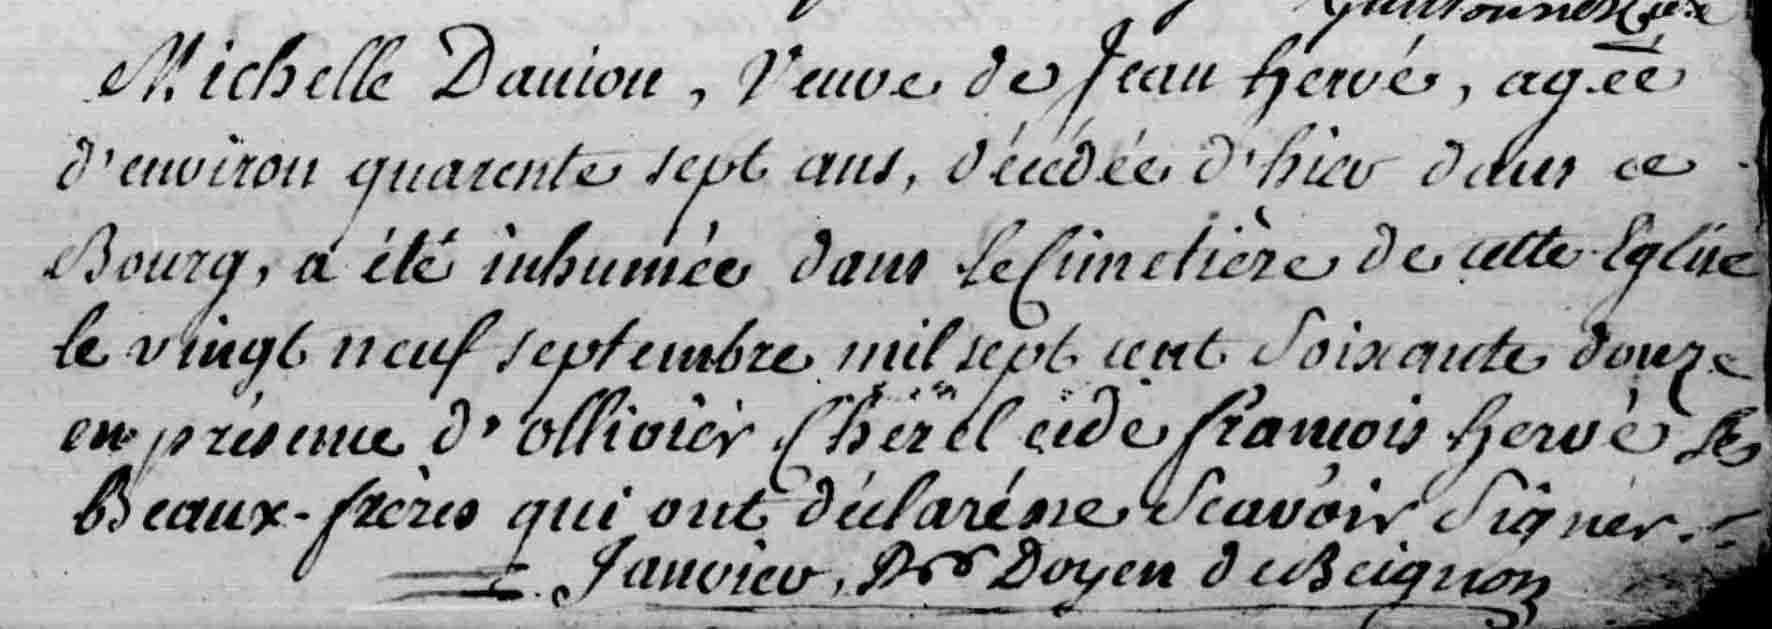 Michelle Danion, Veuve de Jean hervé, agéé
d'environ quarente sept ans, décédée d'hier dans ce
Bourg, a été inhumée dans le Cimetière de cette Eglise
le vingt neuf septembre mil sept cent Soixante douze
en présence d'ollivier Cherel et de françois hervé Ses
Beaux-frères qui ont déclaré ne Scavoir Signer.
Janvier, Doyen de Beignon